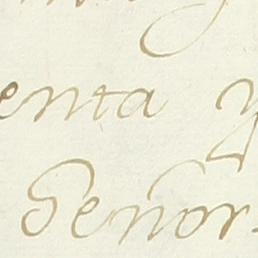 enta y
Señor